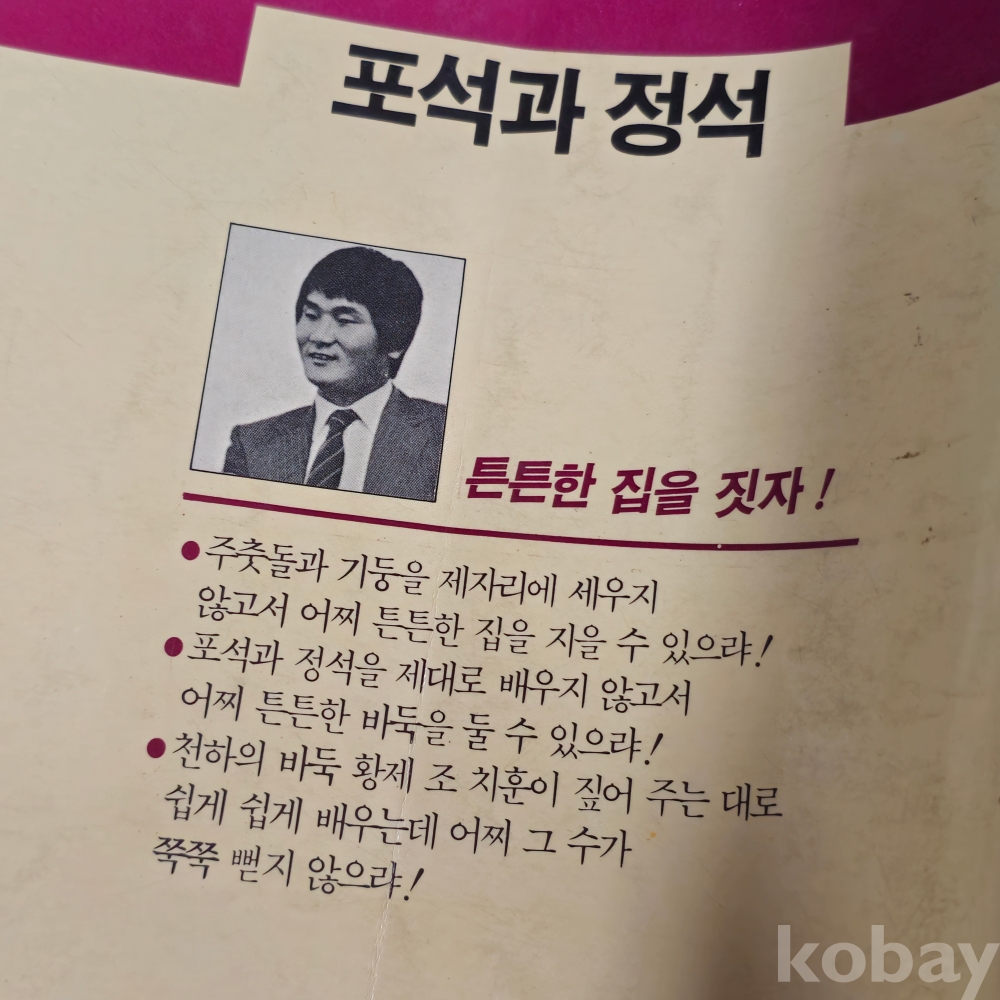 포석과 정석
튼튼한 집을 짓자!
● 주춧돌과 기둥을 제자리에 세우지
않고서 어찌 튼튼한 집을 지을 수 있으랴!
● 포석과 정석을 제대로 배우지 않고서
어찌 튼튼한 바둑을 둘 수 있으랴!
● 천하의 바둑 황제 조 치훈이 짚어 주는 대로
쉽게 쉽게 배우는데 어찌 그 수가
쭉쭉 뻗지 않으랴!
kobay